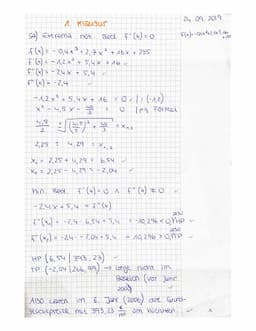 1. Klausur
24.09.2019
5a) Extrema not. Bed. f'(x) = 0
f(x) = -0,4x³ + 2,7x² + 16x + 255
f'(x) = -1,2x² + 5,4x + 16
f''(x) = -2,4x + 5,4
f'''(x) = -2,4
-1,2x² + 5,4x + 16 = 0 | : (-1,2)
x² - 4,5x - = 0 | pq Formel
2,25 ± 4,29 = x₁,₂
x₁ = 2,25 + 4,29 = 6,54
x₂ = 2,25 - 4,29 = -2,04
hin. Bed. f'(x) = 0 ∧ f''(x) ≠ 0
-2,4x + 5,4 = f''(x)
f''(x₁) = -2,4 · 6,54 + 5,4 = -10,296 < 0, HP
f''(x₂) = -2,4 · -2,04 + 5,4 = 10,296 > 0, TP
HP (6,54 | 393,23)
TP (-2,04 | ) → liegt nicht im
Bereich (vor Jahr
2000)
Also waren im 6. Jahr (2006) die Grund-
stückspreise mit 393,23 € am höchsten